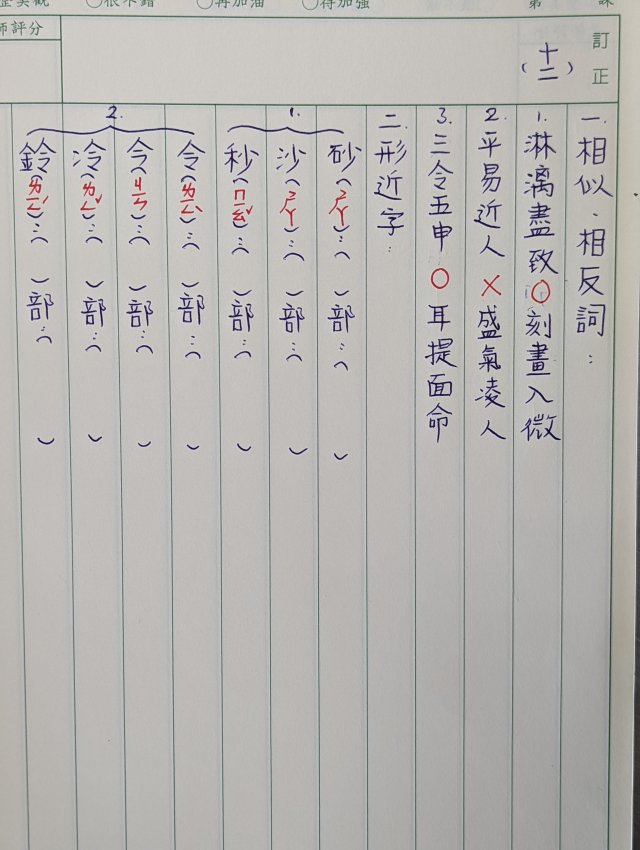 ○很不錯 ○再加油 ○待加強 第 課
師評分
訂正
（十二）
一.相似.相反詞：
1.淋漓盡致○刻畫入微
2.平易近人×盛氣凌人
3.三令五申○耳提面命
二.形近字：
1.
砂（ㄕㄚ）：（ ）部：（ ）
沙（ㄕㄚ）：（ ）部：（ ）
秒（ㄇㄧㄠˇ）：（ ）部：（ ）
2.
令（ㄌㄧㄥˋ）：（ ）部：（ ）
今（ㄐㄧㄣ）：（ ）部：（ ）
冷（ㄌㄥˇ）：（ ）部：（ ）
鈴（ㄌㄧㄥˊ）：（ ）部：（ ）